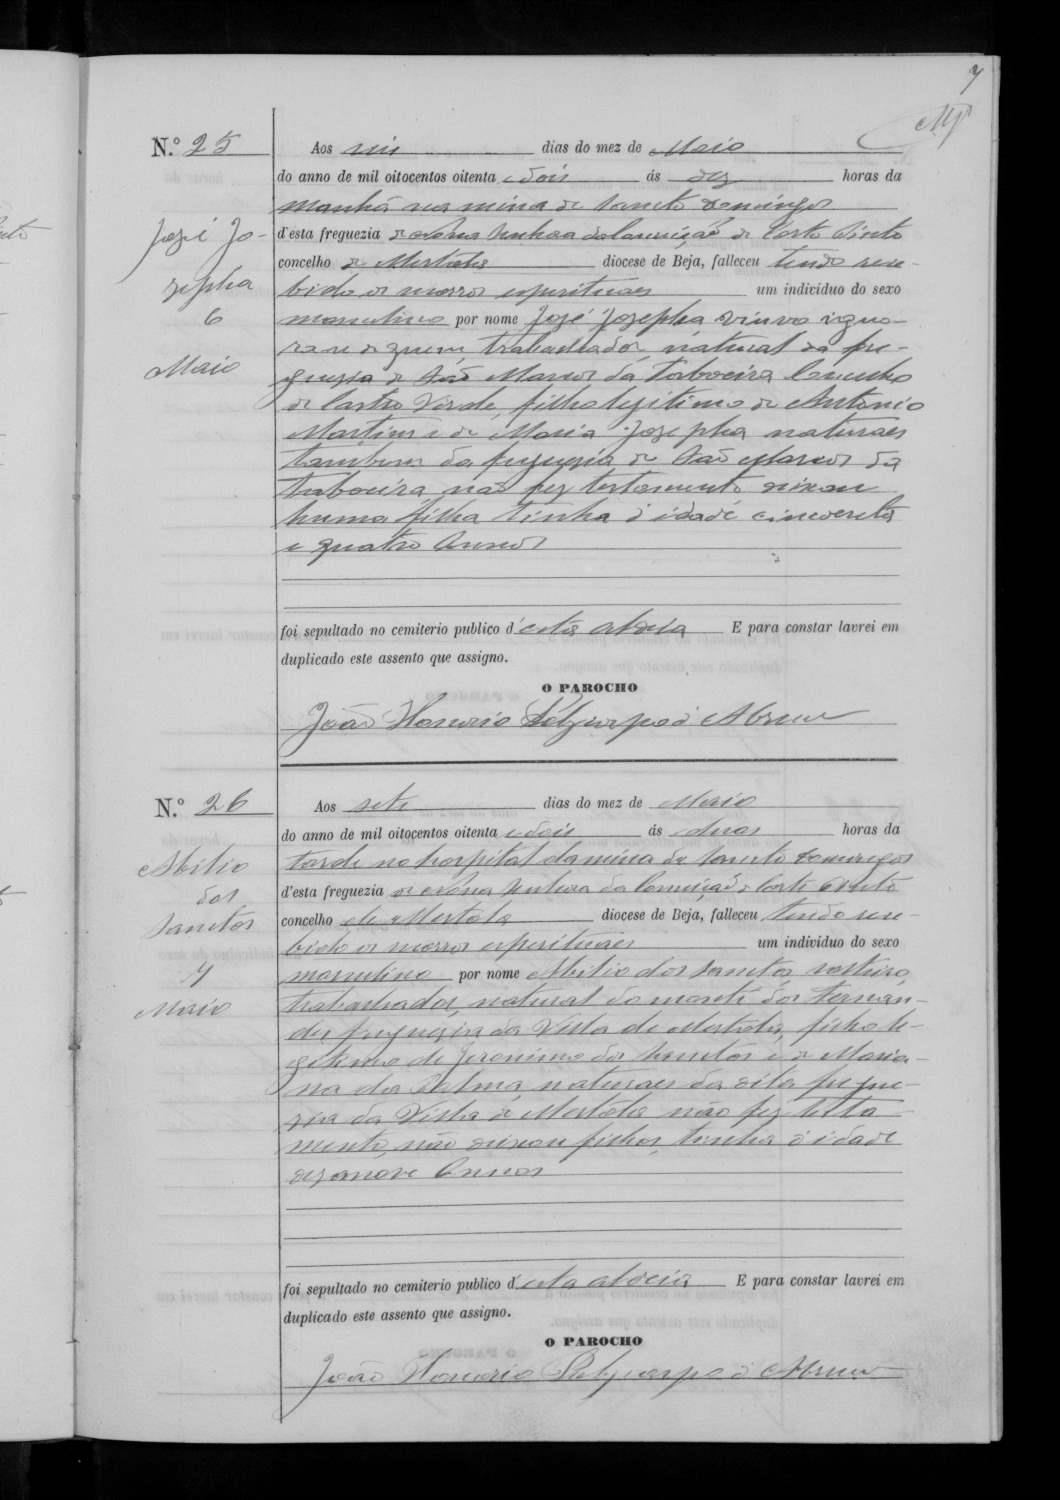 7
N.º 25
Aos seis dias do mez de Maio
do anno de mil oitocentos oitenta e dois ás dez horas da
manhã na mina de Sancto Domingos
d'esta freguezia de Nossa Senhora da Conceição de Corte Pinto
concelho de Mertola diocese de Beja, falleceu tendo rece-
bido os socorros espirituaes um individuo do sexo
masculino por nome José Josepha viuvo igno-
ra se de quem, trabalhador, natural da fre-
guesia de São Marcos da Taboeira Concelho
de Castro Verde, filho legitimo de Antonio
Martins e de Maria Josepha naturaes
tambem da freguesia de São Marcos da
Taboeira, não fez testamento deixou
huma filha tinha d'idade cincoenta
e quatro Annos
José Jo-
sepha
6
Maio
foi sepultado no cemiterio publico d'esta aldeia E para constar lavrei em
duplicado este assento que assigno.
O PAROCHO
João Honorio Polycarpo d'Abreu
N.º 26
Aos sete dias do mez de Maio
do anno de mil oitocentos oitenta e dois ás duas horas da
tarde no hospital da mina de Sancto Domingos
d'esta freguezia de Nossa Senhora da Conceição de Corte Pinto
concelho de Mertola diocese de Beja, falleceu tendo rece-
bido os socorros espirituaes um individuo do sexo
masculino por nome Abilio dos Sanctos, solteiro,
trabalhador, natural do monte dos Fernan-
des freguesia da Villa de Mertola, filho le-
gitimo de Jeronimo dos Sanctos e de Maria-
na da Palma, naturaes da dita fregue-
sia da Villa de Mertola não fez testa
mento, não deixou filhos, tinha d'idade
dezanove Annos
Abilio
dos
Sanctos
7
Maio
foi sepultado no cemiterio publico d'esta aldeia E para constar lavrei em
duplicado este assento que assigno.
O PAROCHO
João Honorio Polycarpo d'Abreu